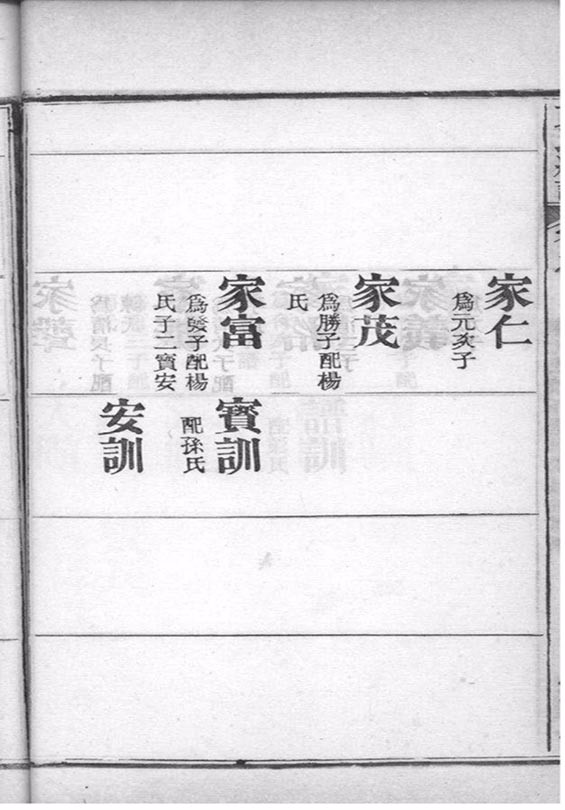 家仁
為元亥子
家茂
為勝子配楊
氏
家富
為發子配楊
氏子二寶安
寶訓
配孫氏
安訓